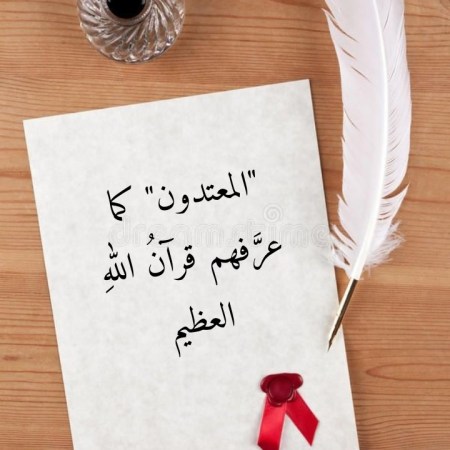 "المعتدون" كما
عرَّفهم قرآنُ اللهِ
العظيم